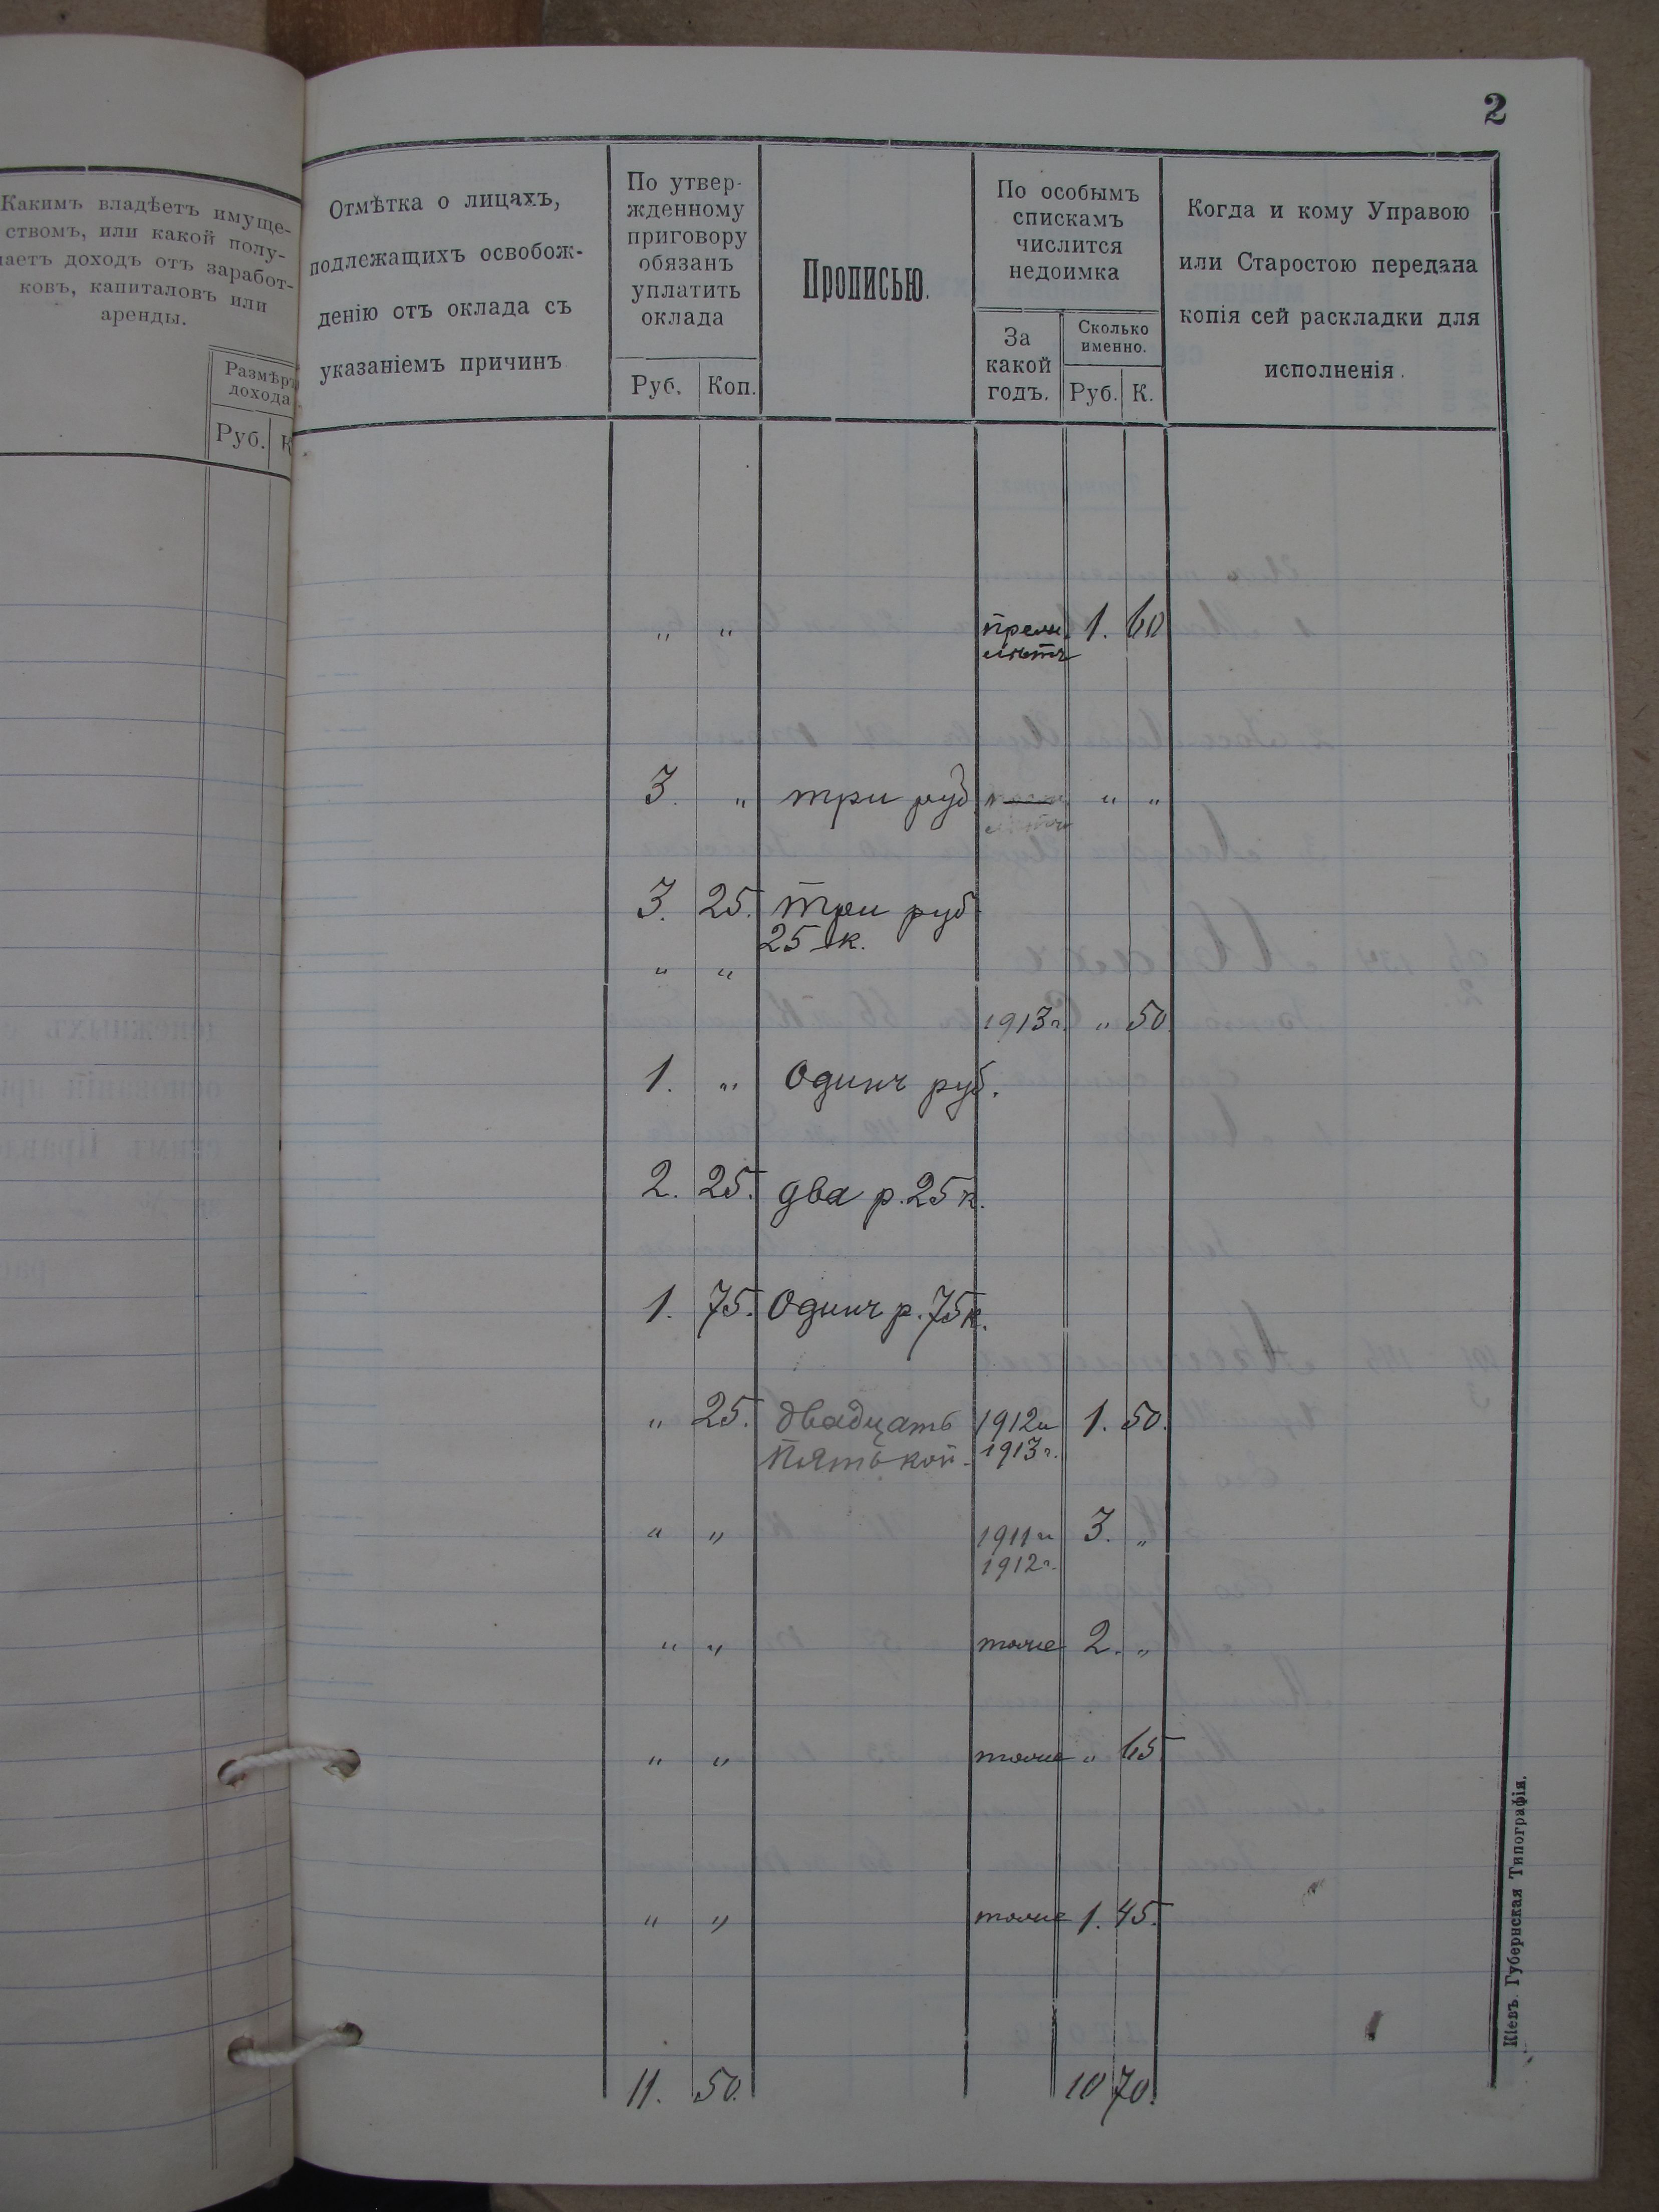 2
Какимъ владѣетъ имуще-
ствомъ, или какой полу-
чаетъ доходъ отъ заработ-
ковъ, капиталовъ или
аренды.
Размѣръ
дохода
Руб. К
Отмѣтка о лицахъ,
подлежащихъ освобож-
денію отъ оклада съ
указаніемъ причинъ
По утвер-
жденному
приговору
обязанъ
уплатить
оклада
Руб. Коп.
Прописью.
По особымъ
спискамъ
числится
недоимка
За
какой
годъ.
Сколько
именно.
Руб. К.
Когда и кому Управою
или Старостою передана
копія сей раскладки для
исполненія.
" " 1. 60
лѣтъ
3. " три руб. " "
3. 25. три руб
25 к.
" "
1913 г. " 50.
1. " Одинъ руб.
2. 25. два р. 25 к.
1. 75. Одинъ р. 75 к.
" 25. двадцать 1912 и 1. 50.
пять коп. 1913 г.
" " 1911 и 3. "
1912 г.
" " тоже 2. "
" " тоже " 65
" " тоже 1. 45.
11. 50. 10 70.
Кіевъ. Губернская Типографія.